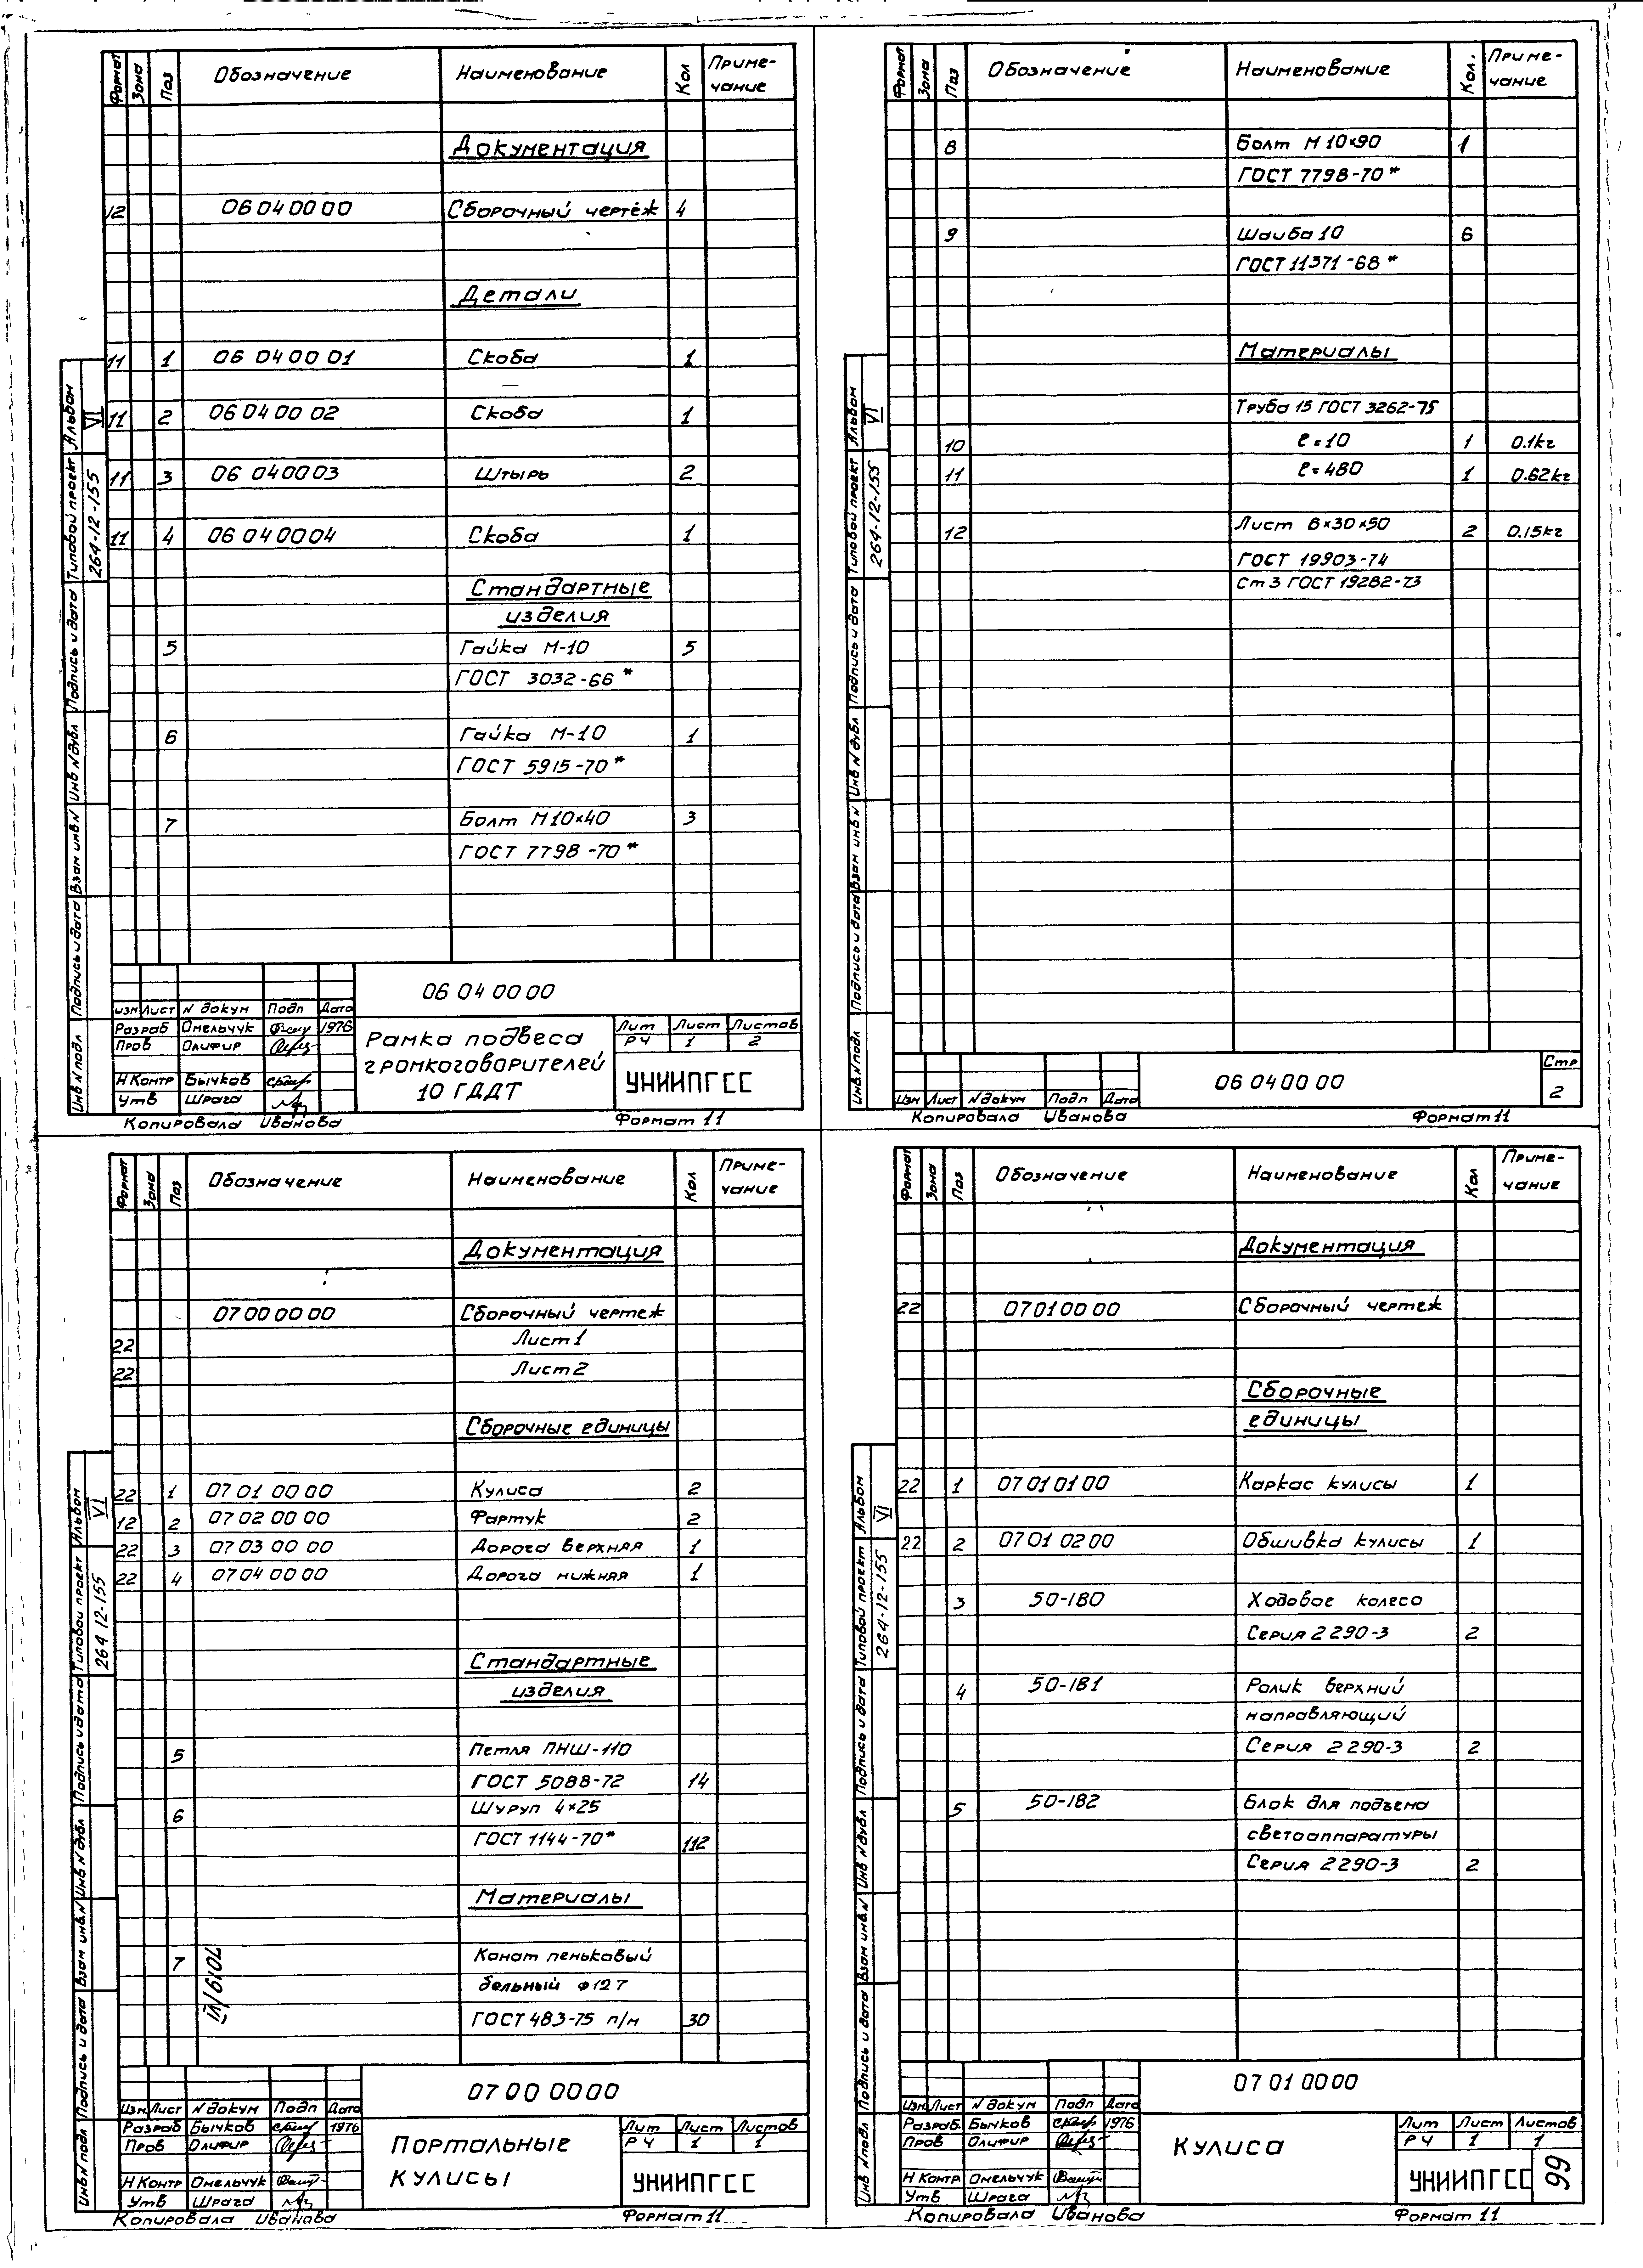 Формат Зона Поз Обозначение Наименование Кол Приме-
чание
Документация
12 06 04 00 00 Сборочный чертёж 4
Детали
11 1 06 04 00 01 Скоба 1
11 2 06 04 00 02 Скоба 1
11 3 06 04 00 03 Штырь 2
11 4 06 04 00 04 Скоба 1
Стандартные
изделия
5 Гайка М-10 5
ГОСТ 3032-66*
6 Гайка М-10 1
ГОСТ 5915-70*
7 Болт М10×40 3
ГОСТ 7798-70*
Альбом VI
Типовой проект 264-12-155
Подпись и дата
Инв N дубл
Взам инв N
Подпись и дата
Инв N подл
06 04 00 00
Изм Лист N докум Подп Дата
Разраб Омельчук 1976
Пров Олифир
Н Контр Бычков
Утв Шрага
Рамка подвеса
громкоговорителей
10 ГДДТ
Лит Лист Листов
РЧ 1 2
УНИИПГСС
Копировала Иванова Формат 11
Формат Зона Поз Обозначение Наименование Кол. Приме-
чание
8 Болт М 10×90 1
ГОСТ 7798-70*
9 Шайба 10 6
ГОСТ 11371-68*
Материалы
Труба 15 ГОСТ 3262-75
10 ℓ=10 1 0.1кг
11 ℓ=480 1 0.62кг
12 Лист 8×30×50 2 0.15кг
ГОСТ 19903-74
Ст 3 ГОСТ 19282-73
Альбом VI
Типовой проект 264-12-155
Подпись и дата
Инв N дубл
Взам инв N
Подпись и дата
Инв. N подл
Изм Лист N докум Подп Дата
06 04 00 00
Стр
2
Копировала Иванова Формат 11
Формат Зона Поз Обозначение Наименование Кол Приме-
чание
Документация
07 00 00 00 Сборочный чертеж
22 Лист 1
22 Лист 2
Сборочные единицы
22 1 07 01 00 00 Кулиса 2
12 2 07 02 00 00 Фартук 2
22 3 07 03 00 00 Дорога верхняя 1
22 4 07 04 00 00 Дорога нижняя 1
Стандартные
изделия
5 Петля ПНШ-110
ГОСТ 5088-72 14
6 Шуруп 4×25
ГОСТ 1144-70* 112
Материалы
7 Канат пеньковый
бельный ф12 7
ГОСТ 483-75 п/м 30
7019/VI
Альбом VI
Типовой проект 264 12-155
Подпись и дата
Инв N дубл
Взам инв. N
Подпись и дата
Инв N подл
07 00 00 00
Изм Лист N докум Подп Дата
Разраб Бычков 1976
Пров Олифир
Н Контр Омельчук
Утв Шрага
Портальные
кулисы
Лит Лист Листов
РЧ 1 1
УНИИПГСС
Копировала Иванова Формат 11
Формат Зона Поз Обозначение Наименование Кол Приме-
чание
Документация
22 07 01 00 00 Сборочный чертеж
Сборочные
единицы
22 1 07 01 01 00 Каркас кулисы 1
22 2 07 01 02 00 Обшивка кулисы 1
3 50-180 Ходовое колесо
Серия 2 290-3 2
4 50-181 Ролик верхний
направляющий
Серия 2 290-3 2
5 50-182 Блок для подъема
светоаппаратуры
Серия 2 290-3 2
Альбом VI
Типовой проект 264-12-155
Подпись и дата
Инв N дубл
Взам инв. N
Подпись и дата
Инв N подл
07 01 00 00
Изм Лист N докум Подп Дата
Разраб. Бычков 1976
Пров Олифир
Н Контр Омельчук
Утв Шрага
Кулиса
Лит Лист Листов
РЧ 1 1
УНИИПГСС
99
Копировала Иванова Формат 11